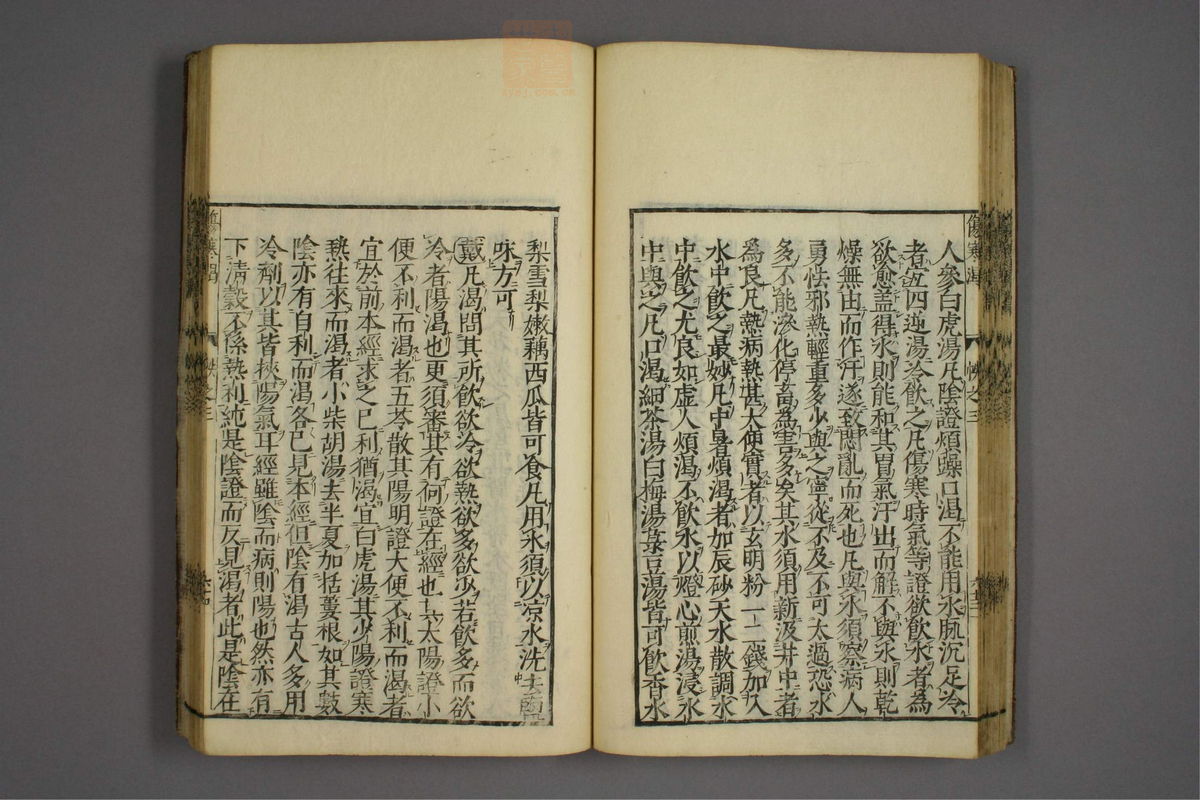 人參白虎湯凡陰證煩躁口渴不能用水脉沉足冷
者宜四逆湯冷飲之凡傷寒時氣等證欲飲水者為
欲愈盖得水則能和其胃氣汗出而解不與水則乾
燥無由而作汗遂致悶亂而死也凡與水須察病人
勇怯邪熱輕重多少與之寧從不及不可太過恐水
多不能滲化停畜為害多矣其水須用新汲井中者
為良凡熱病熱甚大便實者以玄明粉一二錢加入
水中飲之最妙凡中暑煩渴者加辰砂天水散調水
中飲之尤良如虛人煩渴不飲水以燈心煎湯浸氷
中與之凡口渴細茶湯白梅湯菉豆湯皆可飲香水
梨雪梨嫩藕西瓜皆可食凡用氷須以凉水洗去鹽
味方可
戴凡渴問其所飲欲冷欲熱欲多欲少若飲多而欲
冷者陽渴也更須審其有何證在經也其太陽證小
便不利而渴者五苓散其陽明證大便不利而渴者
宜於前本經求之已利猶渴宜白虎湯其少陽證寒
熱往來而渴者小柴胡湯去半夏加栝蔞根如其數
陰亦有自利而渴各已見本經但陰有渴古人多用
冷劑以其皆挾陽氣耳經雖陰而病則陽也然亦有
下清穀不係熱利純是陰證而反見渴者此是陰在
傷寒渴
卷之三